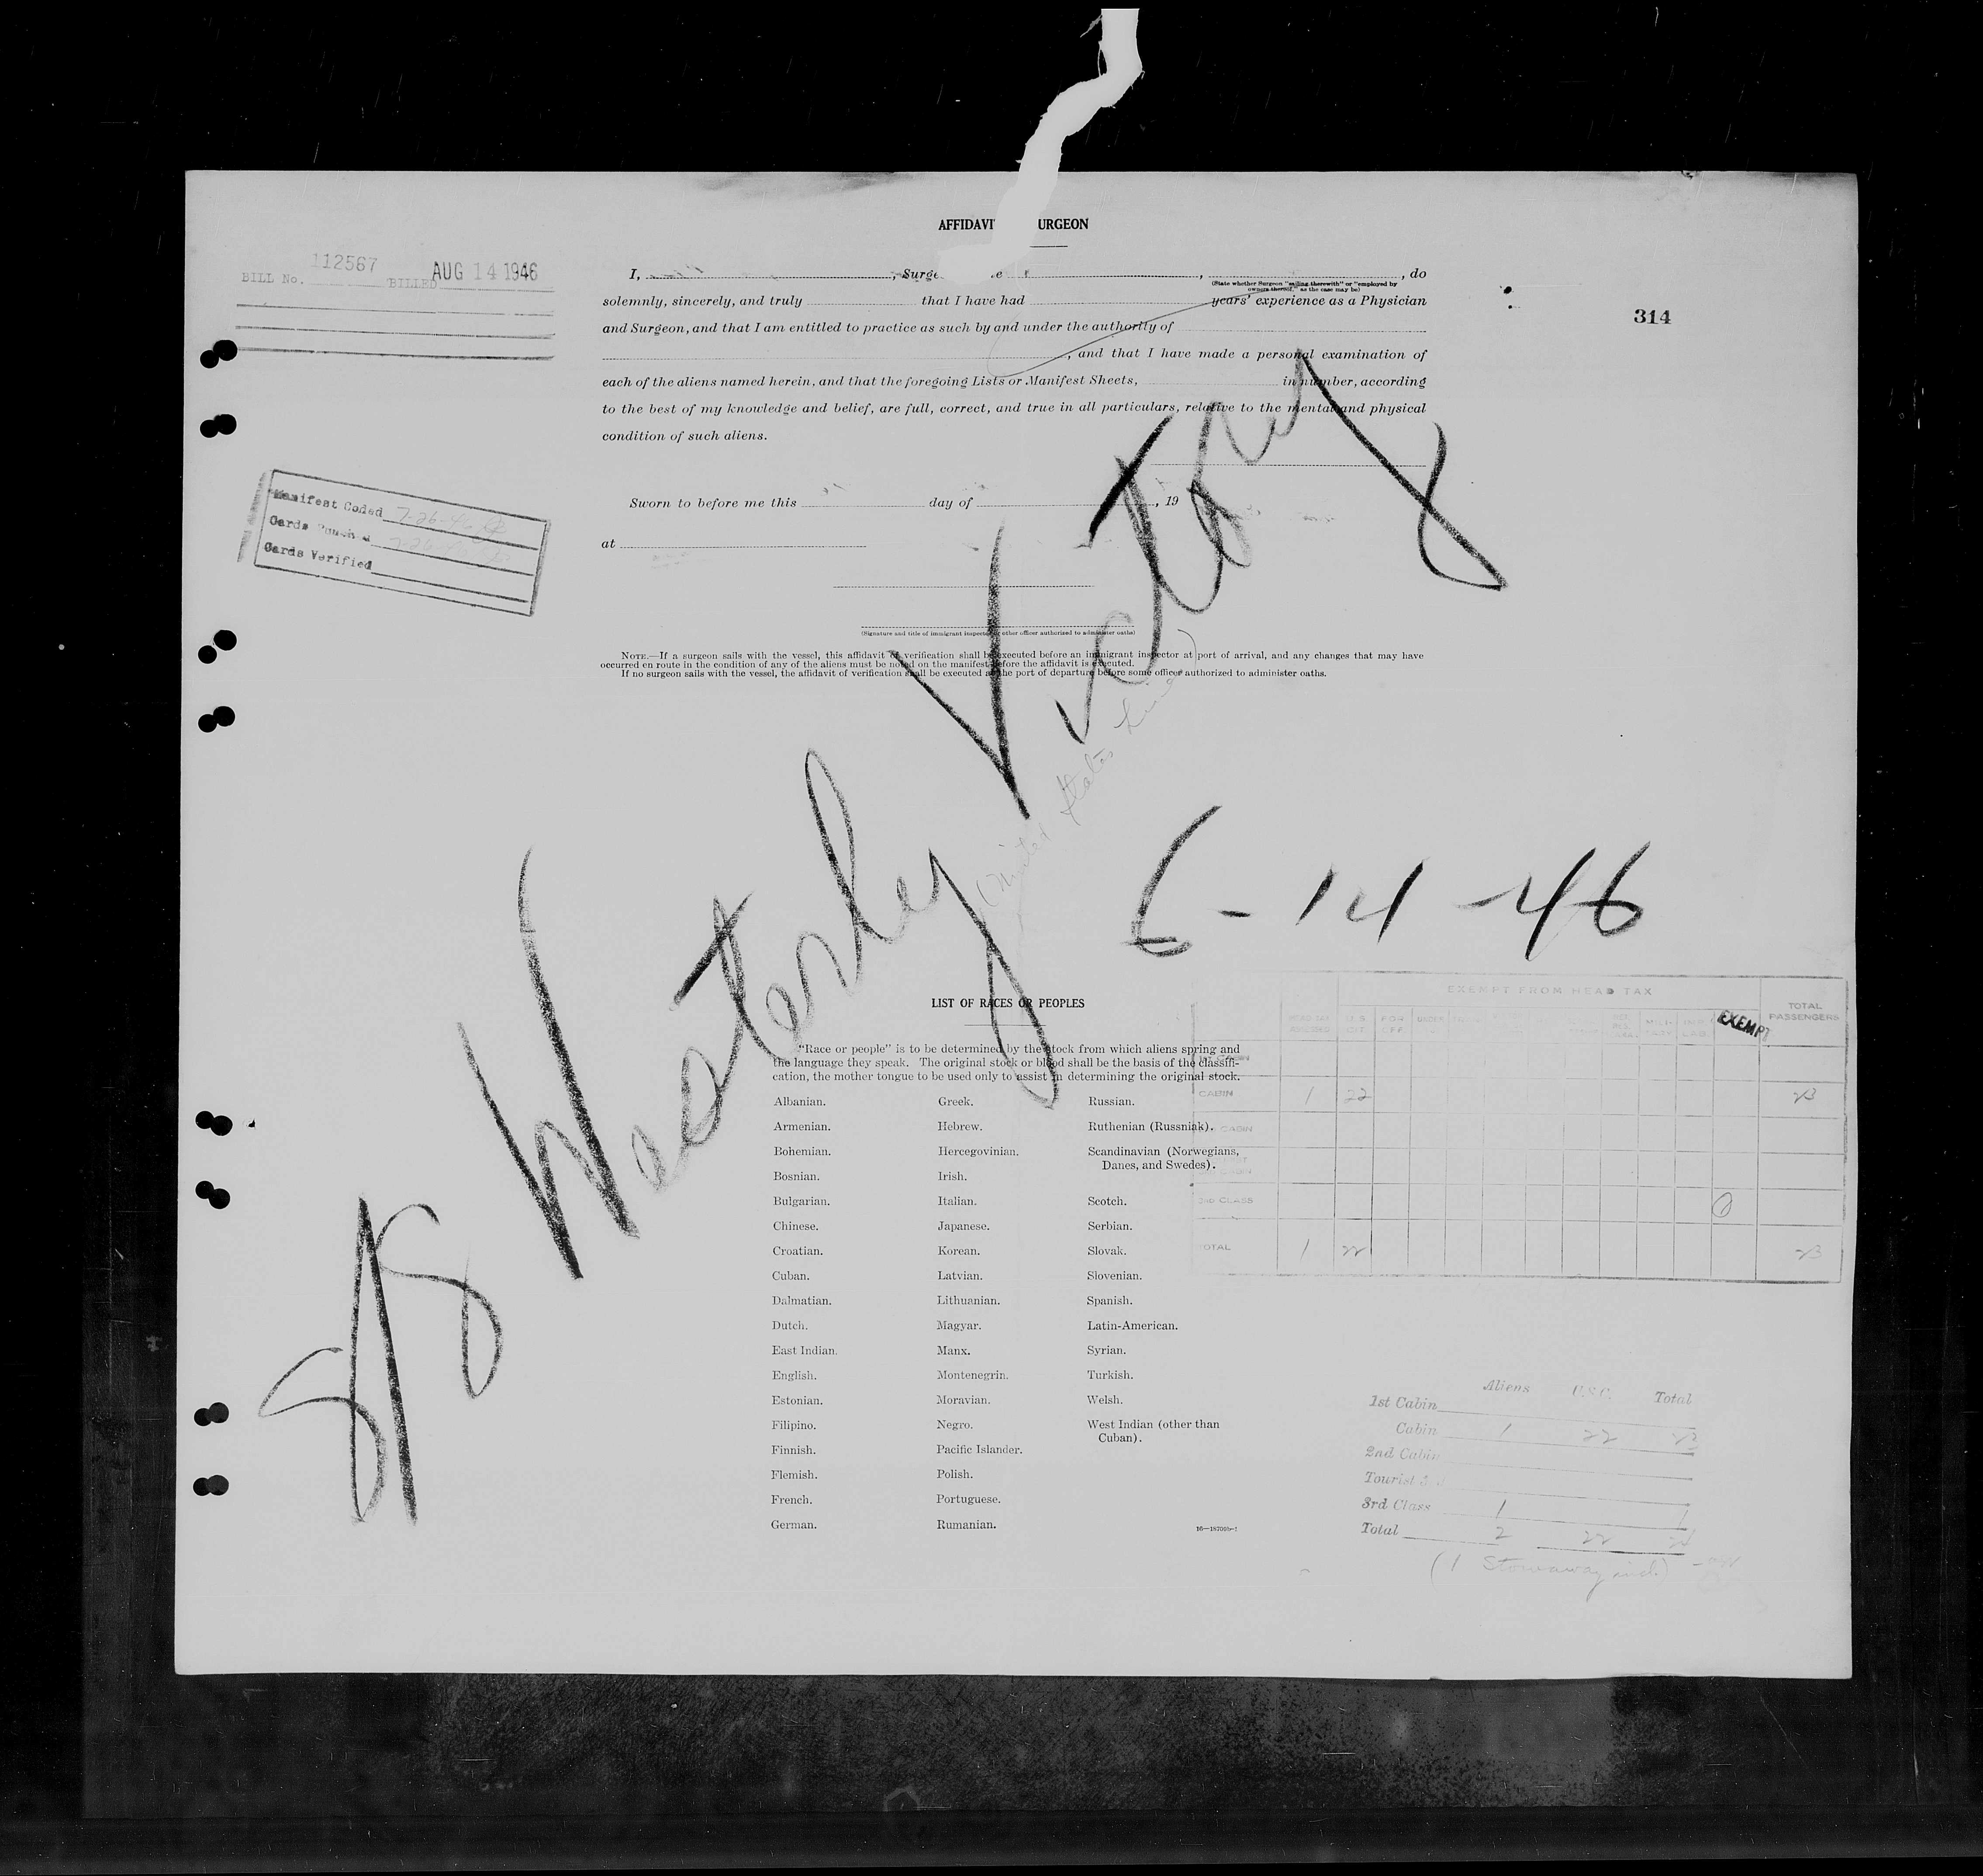 AFFIDAVI URGEON
BILL No. 112567 BILLED AUG 14 1946
I, , Surge e , , do
(State whether Surgeon "sailing therewith" or "employed by
owners thereof," as the case may be)
solemnly, sincerely, and truly that I have had years' experience as a Physician
and Surgeon, and that I am entitled to practice as such by and under the authority of
, and that I have made a personal examination of
each of the aliens named herein, and that the foregoing Lists or Manifest Sheets, in number, according
to the best of my knowledge and belief, are full, correct, and true in all particulars, relative to the mental and physical
condition of such aliens.
314
Manifest Coded 7-26-46
Cards Punch d
Cards Verified
Sworn to before me this day of , 19
at
(Signature and title of immigrant inspector or other officer authorized to administer oaths)
NOTE.—If a surgeon sails with the vessel, this affidavit of verification shall be executed before an immigrant inspector at port of arrival, and any changes that may have
occurred en route in the condition of any of the aliens must be noted on the manifest before the affidavit is executed.
If no surgeon sails with the vessel, the affidavit of verification shall be executed at the port of departure before some officer authorized to administer oaths.
S/S Westerley Victory
(United States Lines)
6-14-46
LIST OF RACES OR PEOPLES
"Race or people" is to be determined by the stock from which aliens spring and
the language they speak. The original stock or blood shall be the basis of the classifi-
cation, the mother tongue to be used only to assist in determining the original stock.
Albanian. Greek. Russian.
Armenian. Hebrew. Ruthenian (Russniak).
Bohemian. Hercegovinian. Scandinavian (Norwegians,
Danes, and Swedes).
Bosnian. Irish.
Bulgarian. Italian. Scotch.
Chinese. Japanese. Serbian.
Croatian. Korean. Slovak.
Cuban. Latvian. Slovenian.
Dalmatian. Lithuanian. Spanish.
Dutch. Magyar. Latin-American.
East Indian. Manx. Syrian.
English. Montenegrin. Turkish.
Estonian. Moravian. Welsh.
Filipino. Negro. West Indian (other than
Cuban).
Finnish. Pacific Islander.
Flemish. Polish.
French. Portuguese.
German. Rumanian.
EXEMPT FROM HEAD TAX
HEAD TAX ASSESSED U.S. CIT. FOR OFF EXEMPT TOTAL PASSENGERS
CABIN 1 22 23
CABIN
3RD CLASS 0
TOTAL 1 22 23
Aliens U.S.C. Total
1st Cabin
Cabin 1 22 23
2nd Cabin
Tourist
3rd Class 1 1
Total 2 22 24
(1 Stowaway incl.)